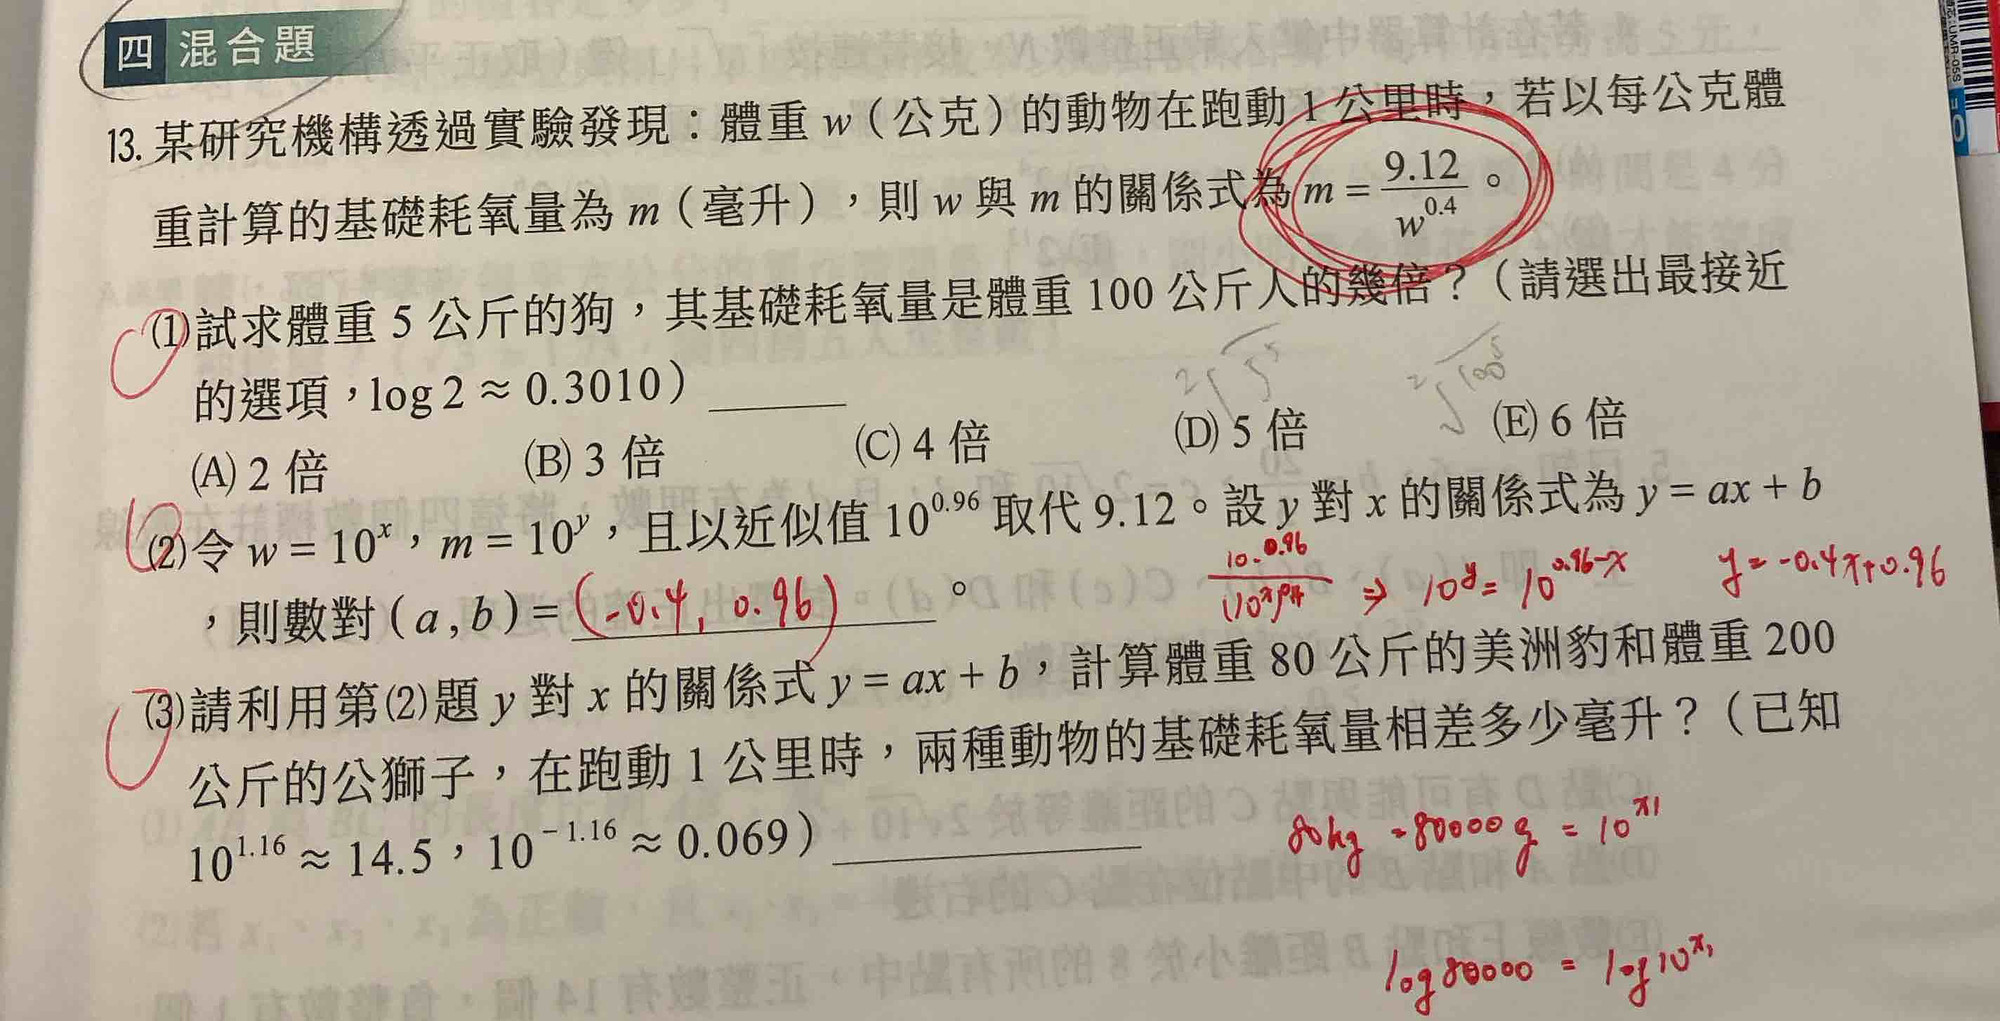 四 混合題
13. 某研究機構透過實驗發現：體重 w（公克）的動物在跑動 1 公里時，若以每公克體
重計算的基礎耗氧量為 m（毫升），則 w 與 m 的關係式為 m = 9.12/w^0.4。
(1)試求體重 5 公斤的狗，其基礎耗氧量是體重 100 公斤人的幾倍？（請選出最接近
的選項，log 2 ≈ 0.3010）______
(A) 2 倍 (B) 3 倍 (C) 4 倍 (D) 5 倍 (E) 6 倍
(2)令 w = 10^x，m = 10^y，且以近似值 10^0.96 取代 9.12。設 y 對 x 的關係式為 y = ax + b
，則數對 ( a , b ) = (-0.4, 0.96)。
⇒ 10^y = 10^0.96-x
y = -0.4x+0.96
(3)請利用第(2)題 y 對 x 的關係式 y = ax + b，計算體重 80 公斤的美洲豹和體重 200
公斤的公獅子，在跑動 1 公里時，兩種動物的基礎耗氧量相差多少毫升？（已知
10^1.16 ≈ 14.5，10^-1.16 ≈ 0.069）______
80kg = 80000g = 10^x1
log 80000 = log 10^x1